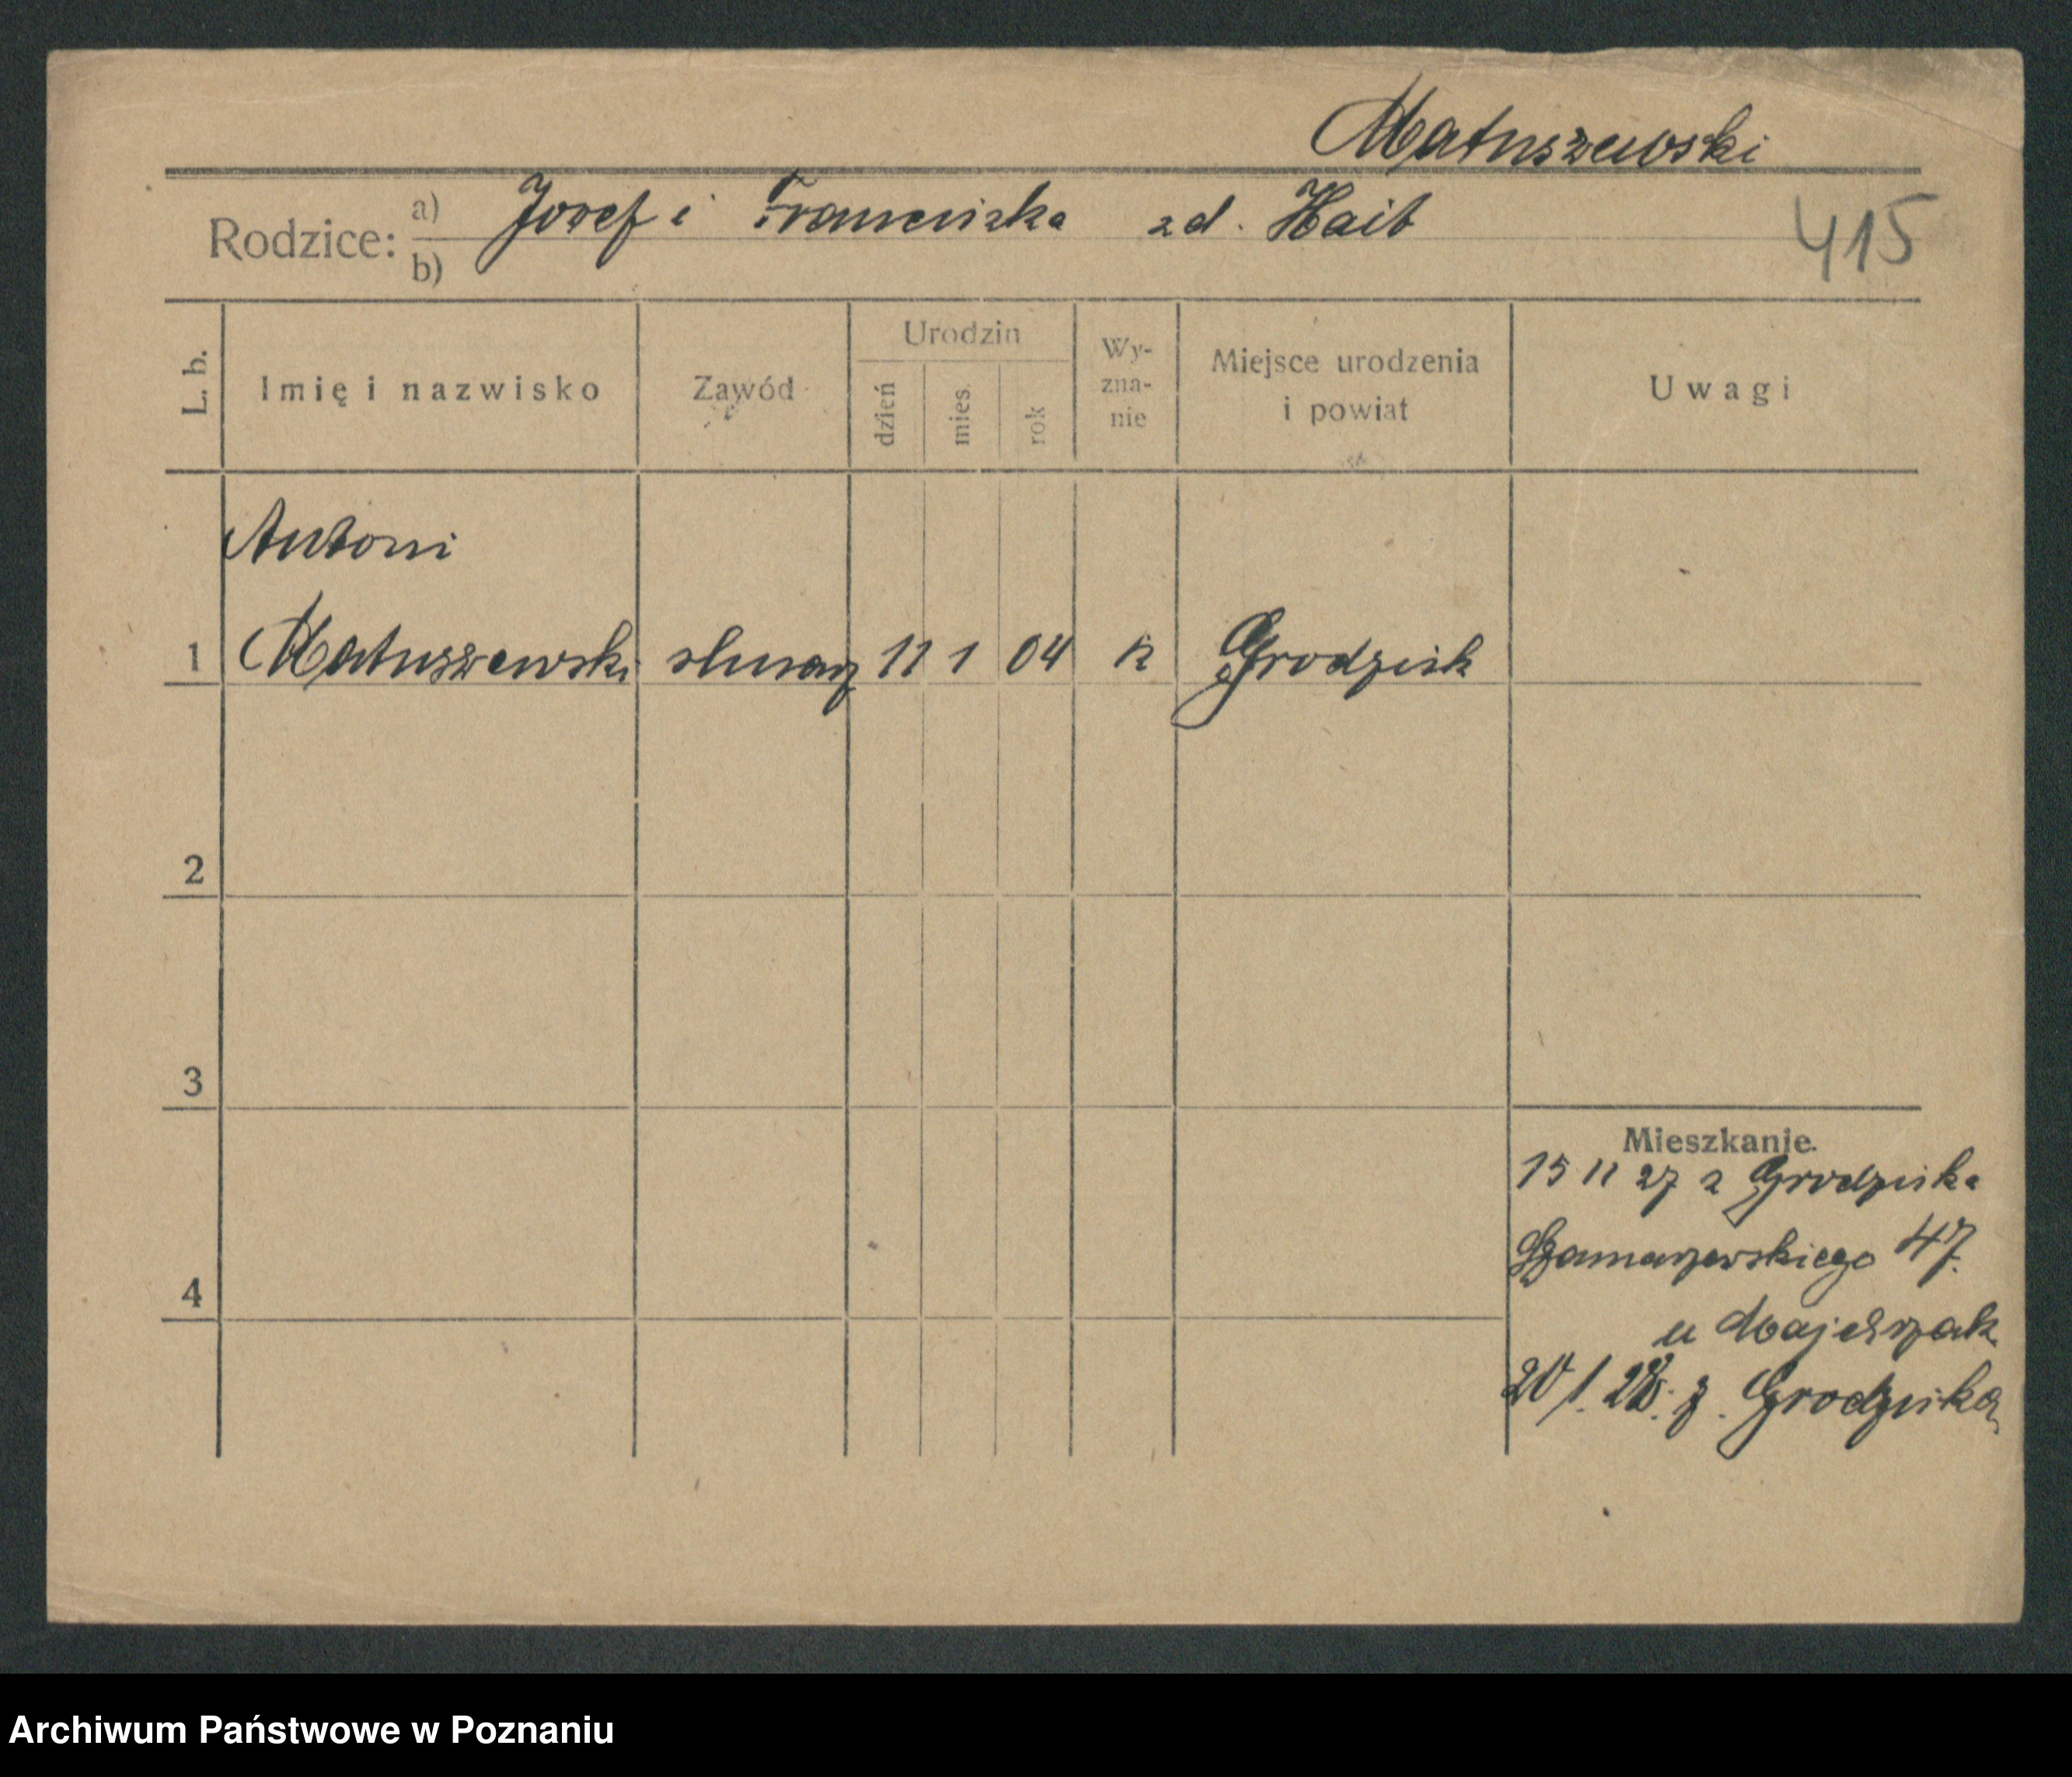 Matuszewski
Rodzice: a) Jozef i Franciszka zd. Hait
b)
415
L. b.
Imię i nazwisko
Zawód
Urodzin
dzień
mies.
rok
Wy-
zna-
nie
Miejsce urodzenia
i powiat
Uwagi
Antoni
1 Matuszewski slusarz 11 1 04 k Grodzisk
2
3
Mieszkanie.
15 11 27 z Grodziska
Szamarzewskiego 47.
4
u Majchrzak
20/1. 28. z. Grodziska
Archiwum Państwowe w Poznaniu